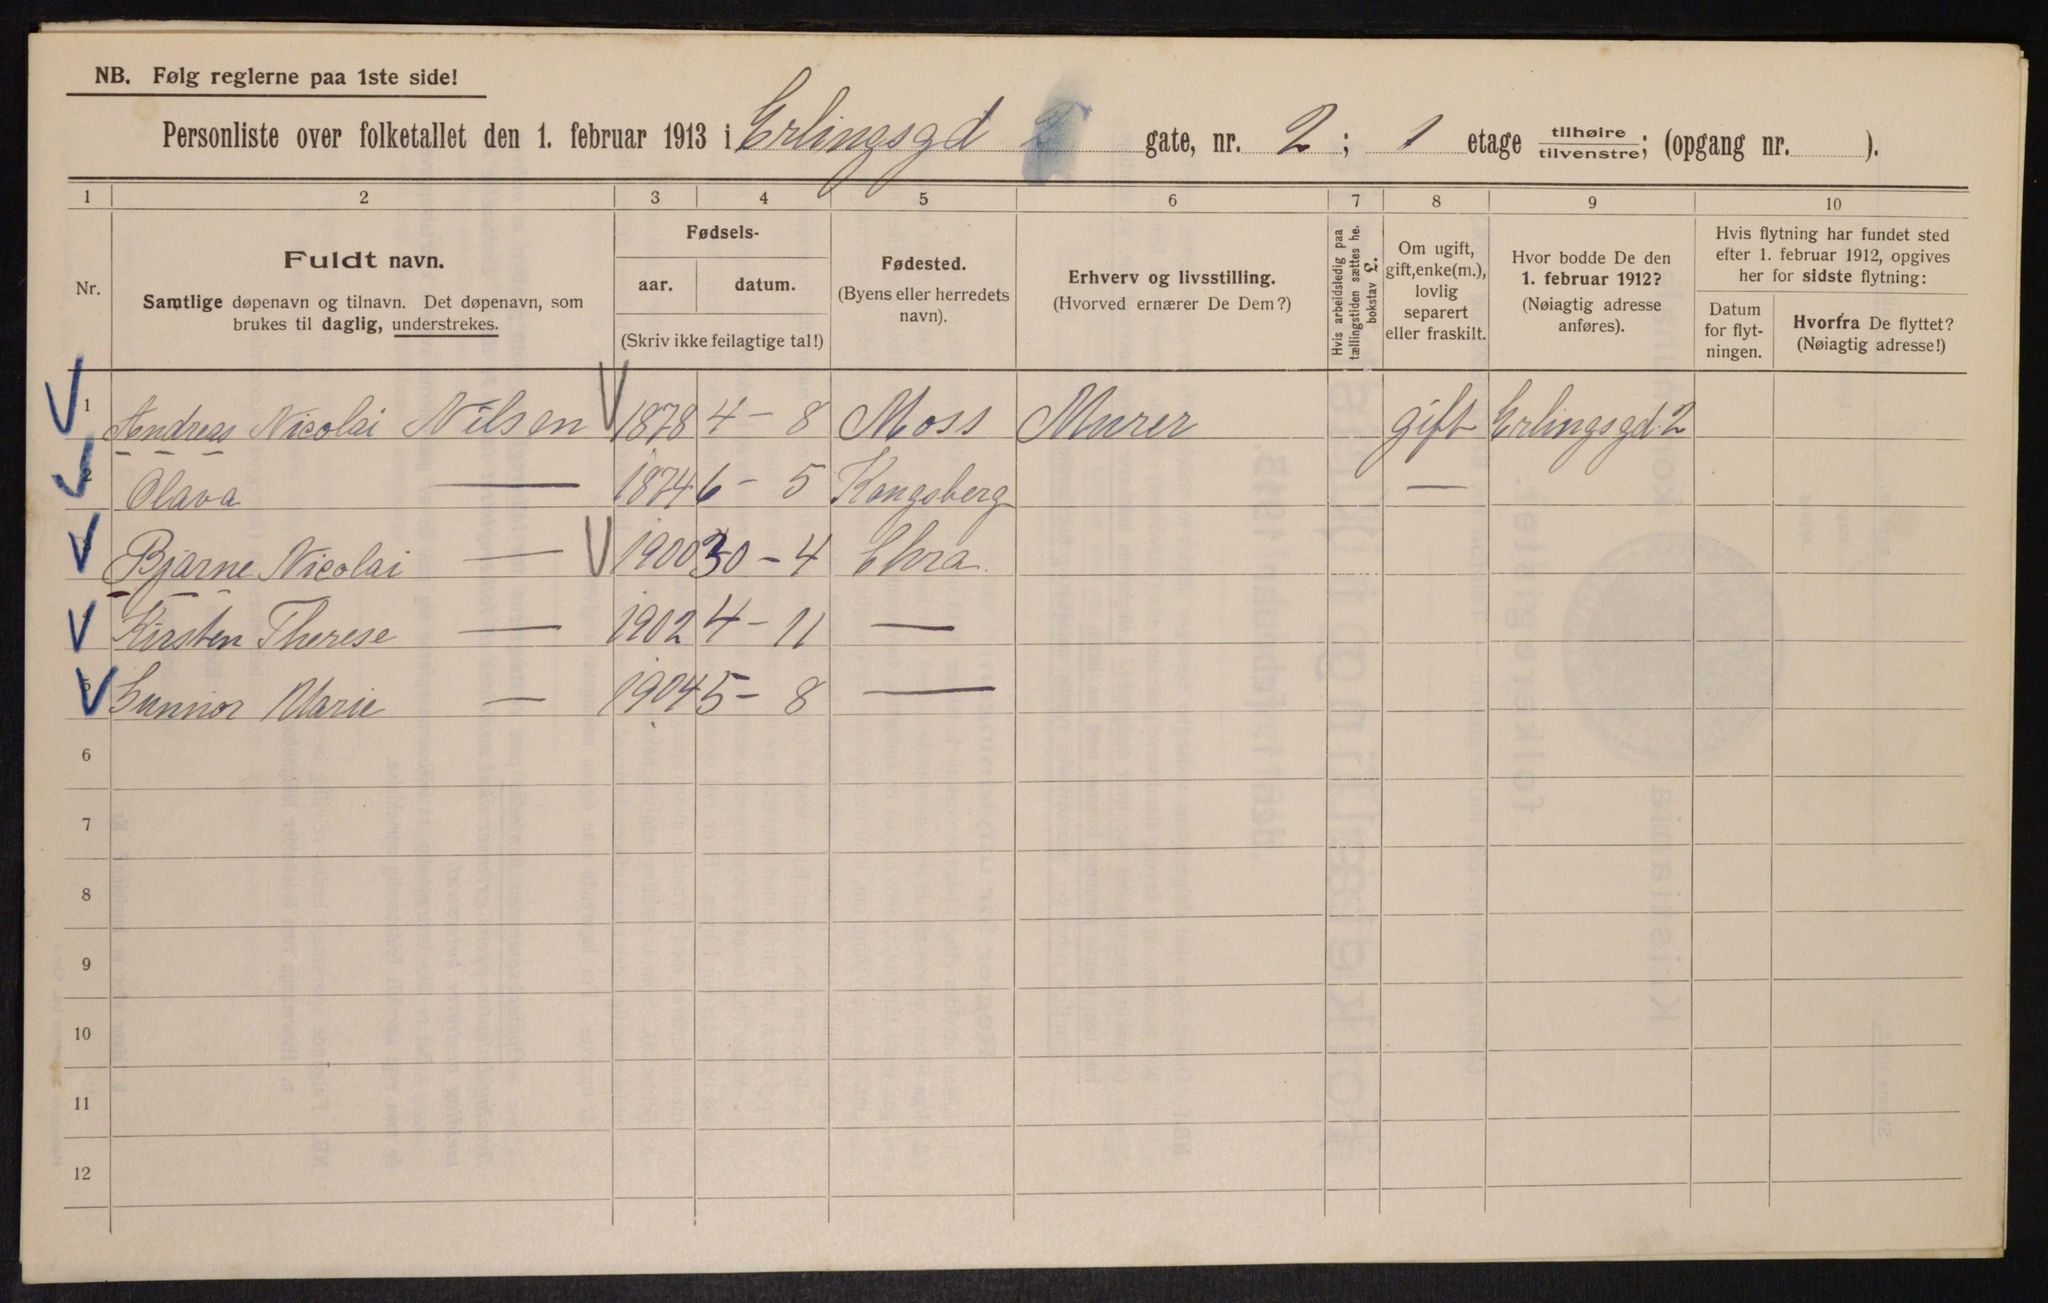 NB. Følg reglerne paa 1ste side!
Personliste over folketallet den 1. februar 1913 i Erlingsgd 2 gate, nr. 2; 1 etage tilhøire/tilvenstre; (opgang nr. ).
1 2 3 4 5 6 7 8 9 10
Nr.
Fuldt navn.
Samtlige døpenavn og tilnavn. Det døpenavn, som
brukes til daglig, understrekes.
Fødsels-
aar. datum.
(Skriv ikke feilagtige tal!)
Fødested.
(Byens eller herredets
navn).
Erhverv og livsstilling.
(Hvorved ernærer De Dem?)
Hvis arbeidsledig paa
tællingstiden sættes he.
bokstav L.
Om ugift,
gift, enke(m.),
lovlig
separert
eller fraskilt.
Hvor bodde De den
1. februar 1912?
(Nøiagtig adresse
anføres).
Hvis flytning har fundet sted
efter 1. februar 1912, opgives
her for sidste flytning:
Datum
for flyt-
ningen.
Hvorfra De flyttet?
(Nøiagtig adresse!)
1 Andreas Nicolai Nilsen 1878 4 - 8 Moss Murer gift Erlingsgd. 2
2 Olava — 1874 6 - 5 Kongsberg —
Bjarne Nicolai — 1900 30 - 4 Chra.
Kirsten Therese — 1902 4 - 11 —
5 Gunnor Marie — 1904 5 - 8 —
6
7
8
9
10
11
12